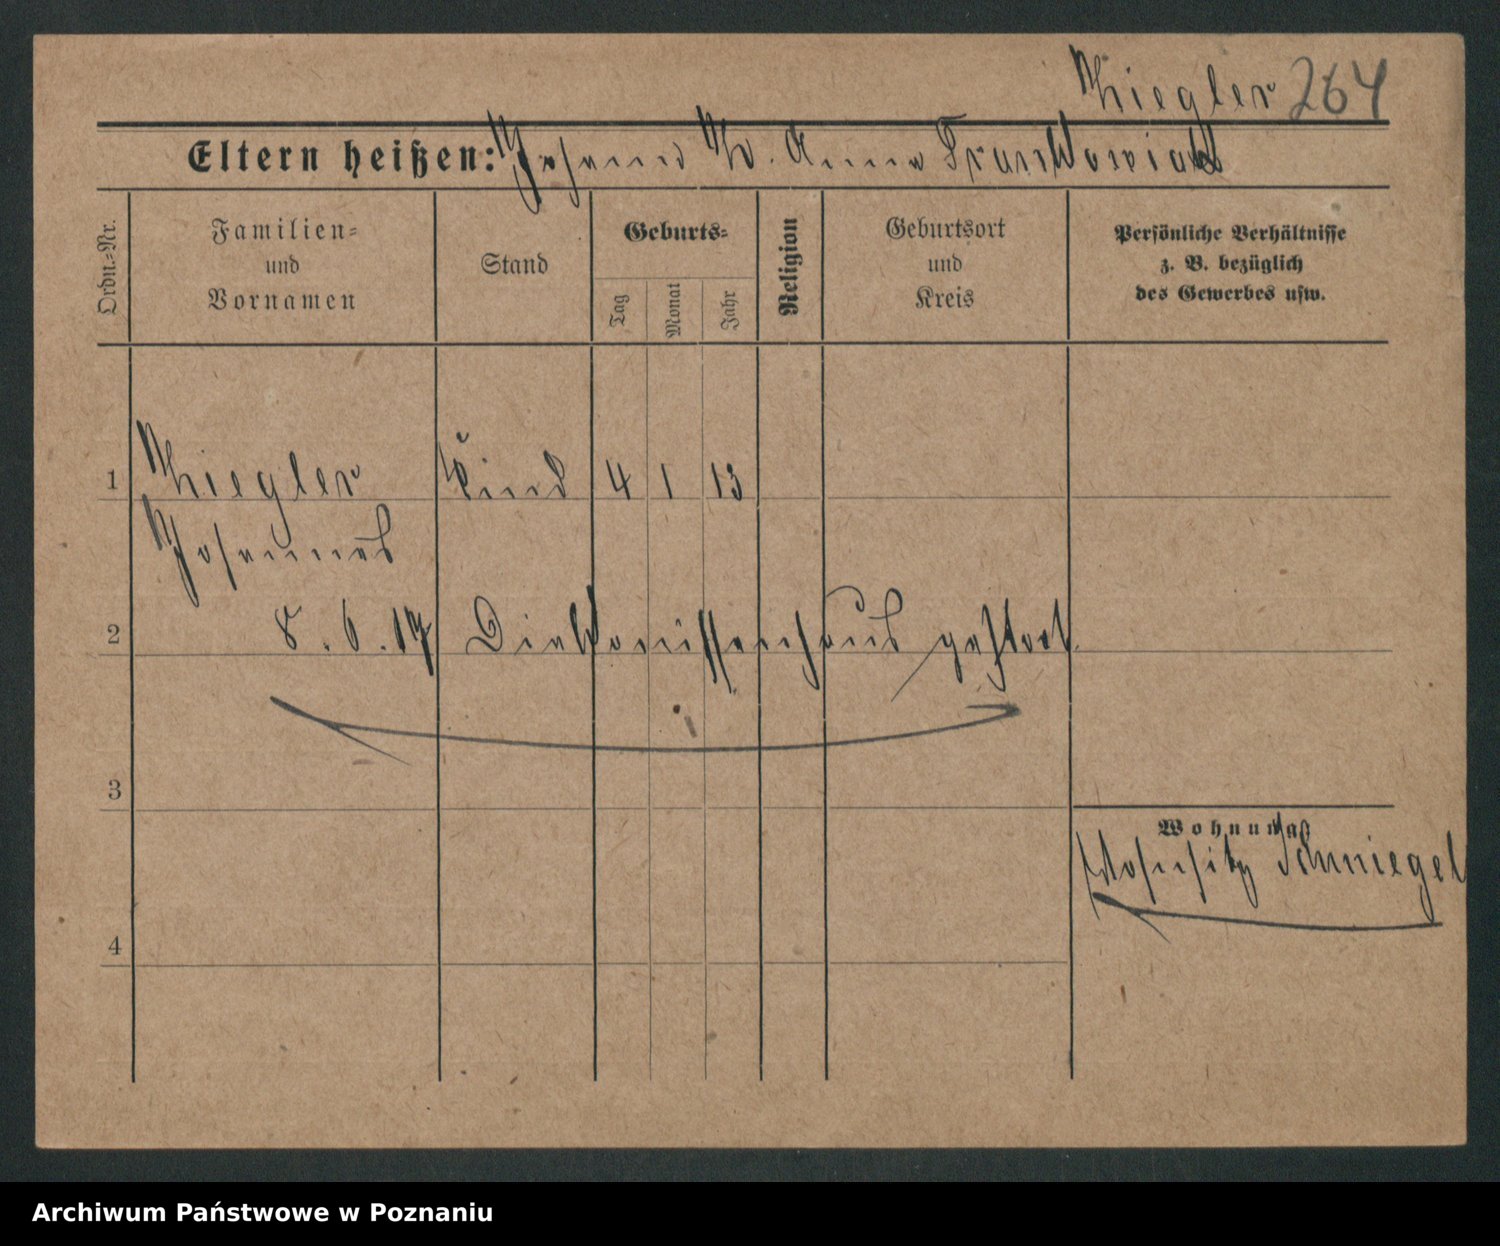 Thiegler 264
Eltern heißen: Johann Th. Anna Frankowiak
Ordn.-Nr.
Familien-
und
Vornamen
Stand
Geburts-
Tag
Monat
Jahr
Religion
Geburtsort
und
Kreis
Persönliche Verhältnisse
z. B. bezüglich
des Gewerbes usw.
1 Thiegler Kind 4 1 13
Johannes
2 8.6.17 Diakonissenhaus gestorb.
3
Wohnung
Schmiegel
4
Archiwum Państwowe w Poznaniu